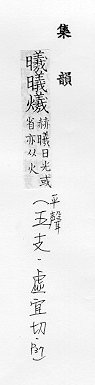 集韻
曦㬢爔赫曦日光或
省亦从火
(平聲
五支·虛宜切·